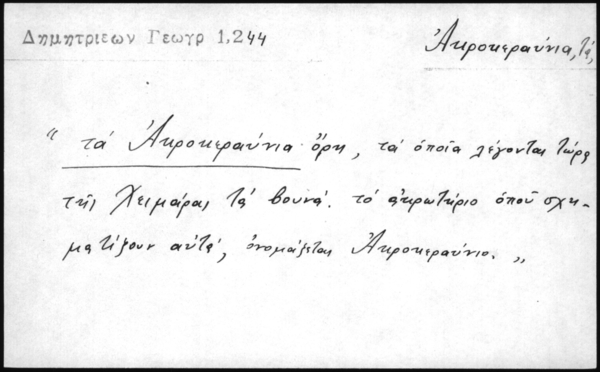 Δημητριεων Γεωγρ 1,244
Ἀκροκεραύνια, τά,
“ τά Ἀκροκεραύνια ὄρη, τά ὁποῖα λέγονται τώρα
τῆς Χειμάρας τά βουνά. τό ἀκρωτήριο ὁποῦ σχη-
ματίζουν αὐτά, ὀνομάζεται Ἀκροκεραύνιο. „